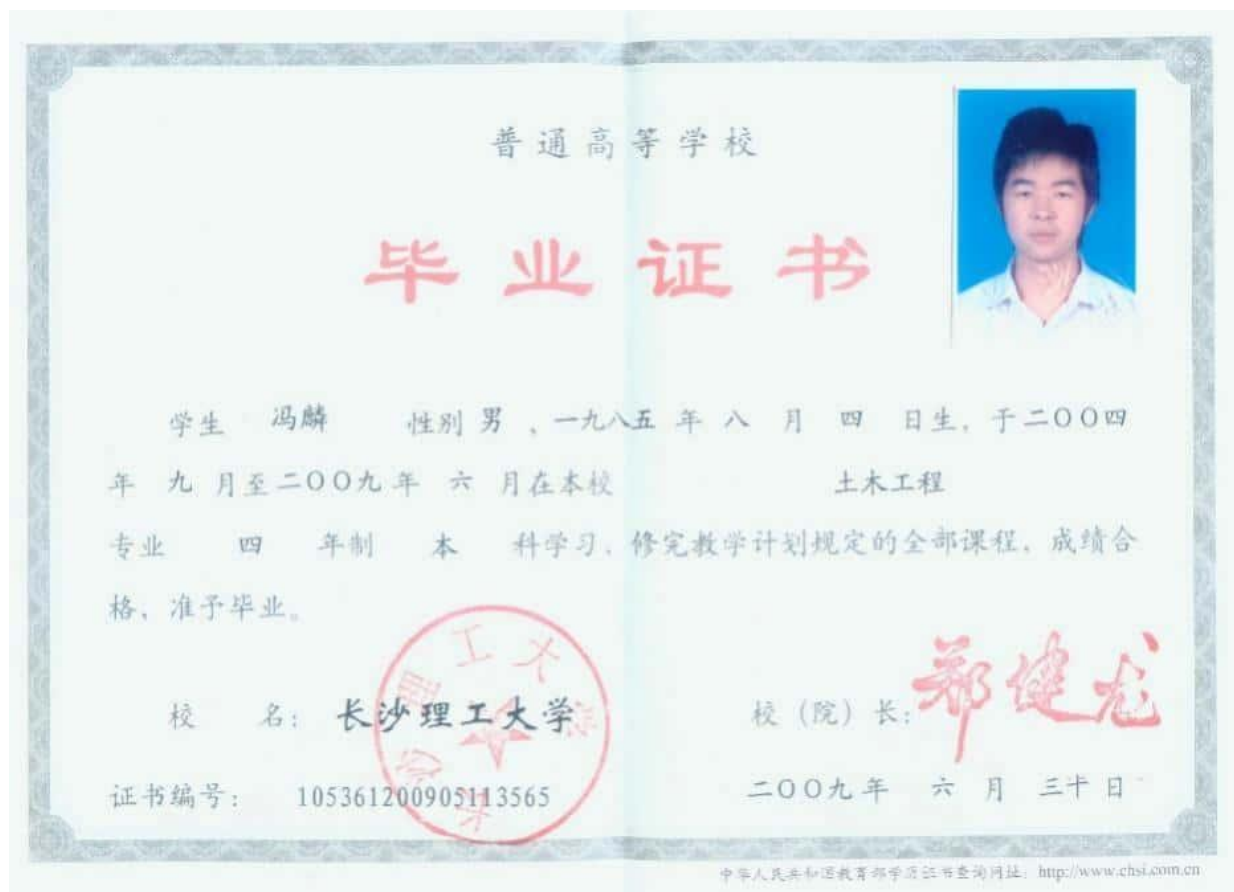 普通高等学校
毕业证书
学生 冯麟 性别 男 ,一九八五 年 八 月 四 日生, 于二〇〇四
年 九 月至二〇〇九年 六 月在本校 土木工程
专业 四 年制 本 科学习、修完教学计划规定的全部课程, 成绩合
格, 准予毕业。
长沙理工大学
校 名: 长沙理工大学 校(院)长: 郑健龙
证书编号: 105361200905113565 二〇〇九年 六 月 三十 日
中华人民共和国教育部学历证书查询网址: http://www.chsi.com.cn